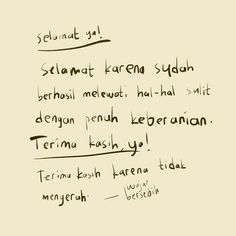 selamat ya!
Selamat karena sudah
berhasil melewati hal-hal sulit
dengan penuh keberanian.
Terima kasih, ya!
Terima kasih karena tidak
menyerah. — wajar
bersedih